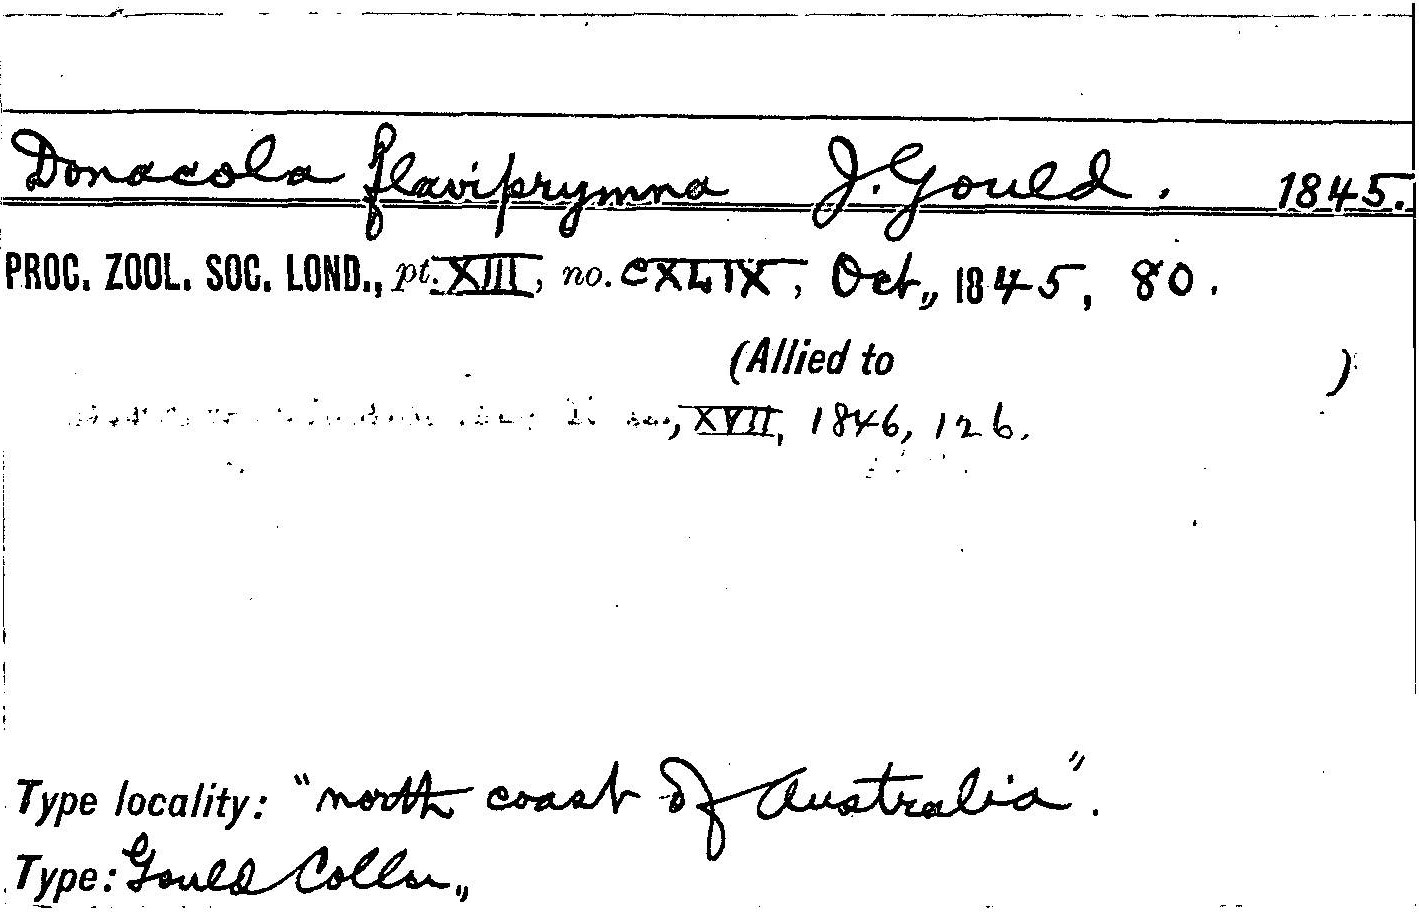 Donacola flaviprymna J. Gould. 1845.
PROC. ZOOL. SOC. LOND., pt. XIII, no. CXLIX, Oct., 1845, 80.
(Allied to )
, XVII, 1846, 126.
Type locality: "north coast of Australia".
Type: Gould Colln.,